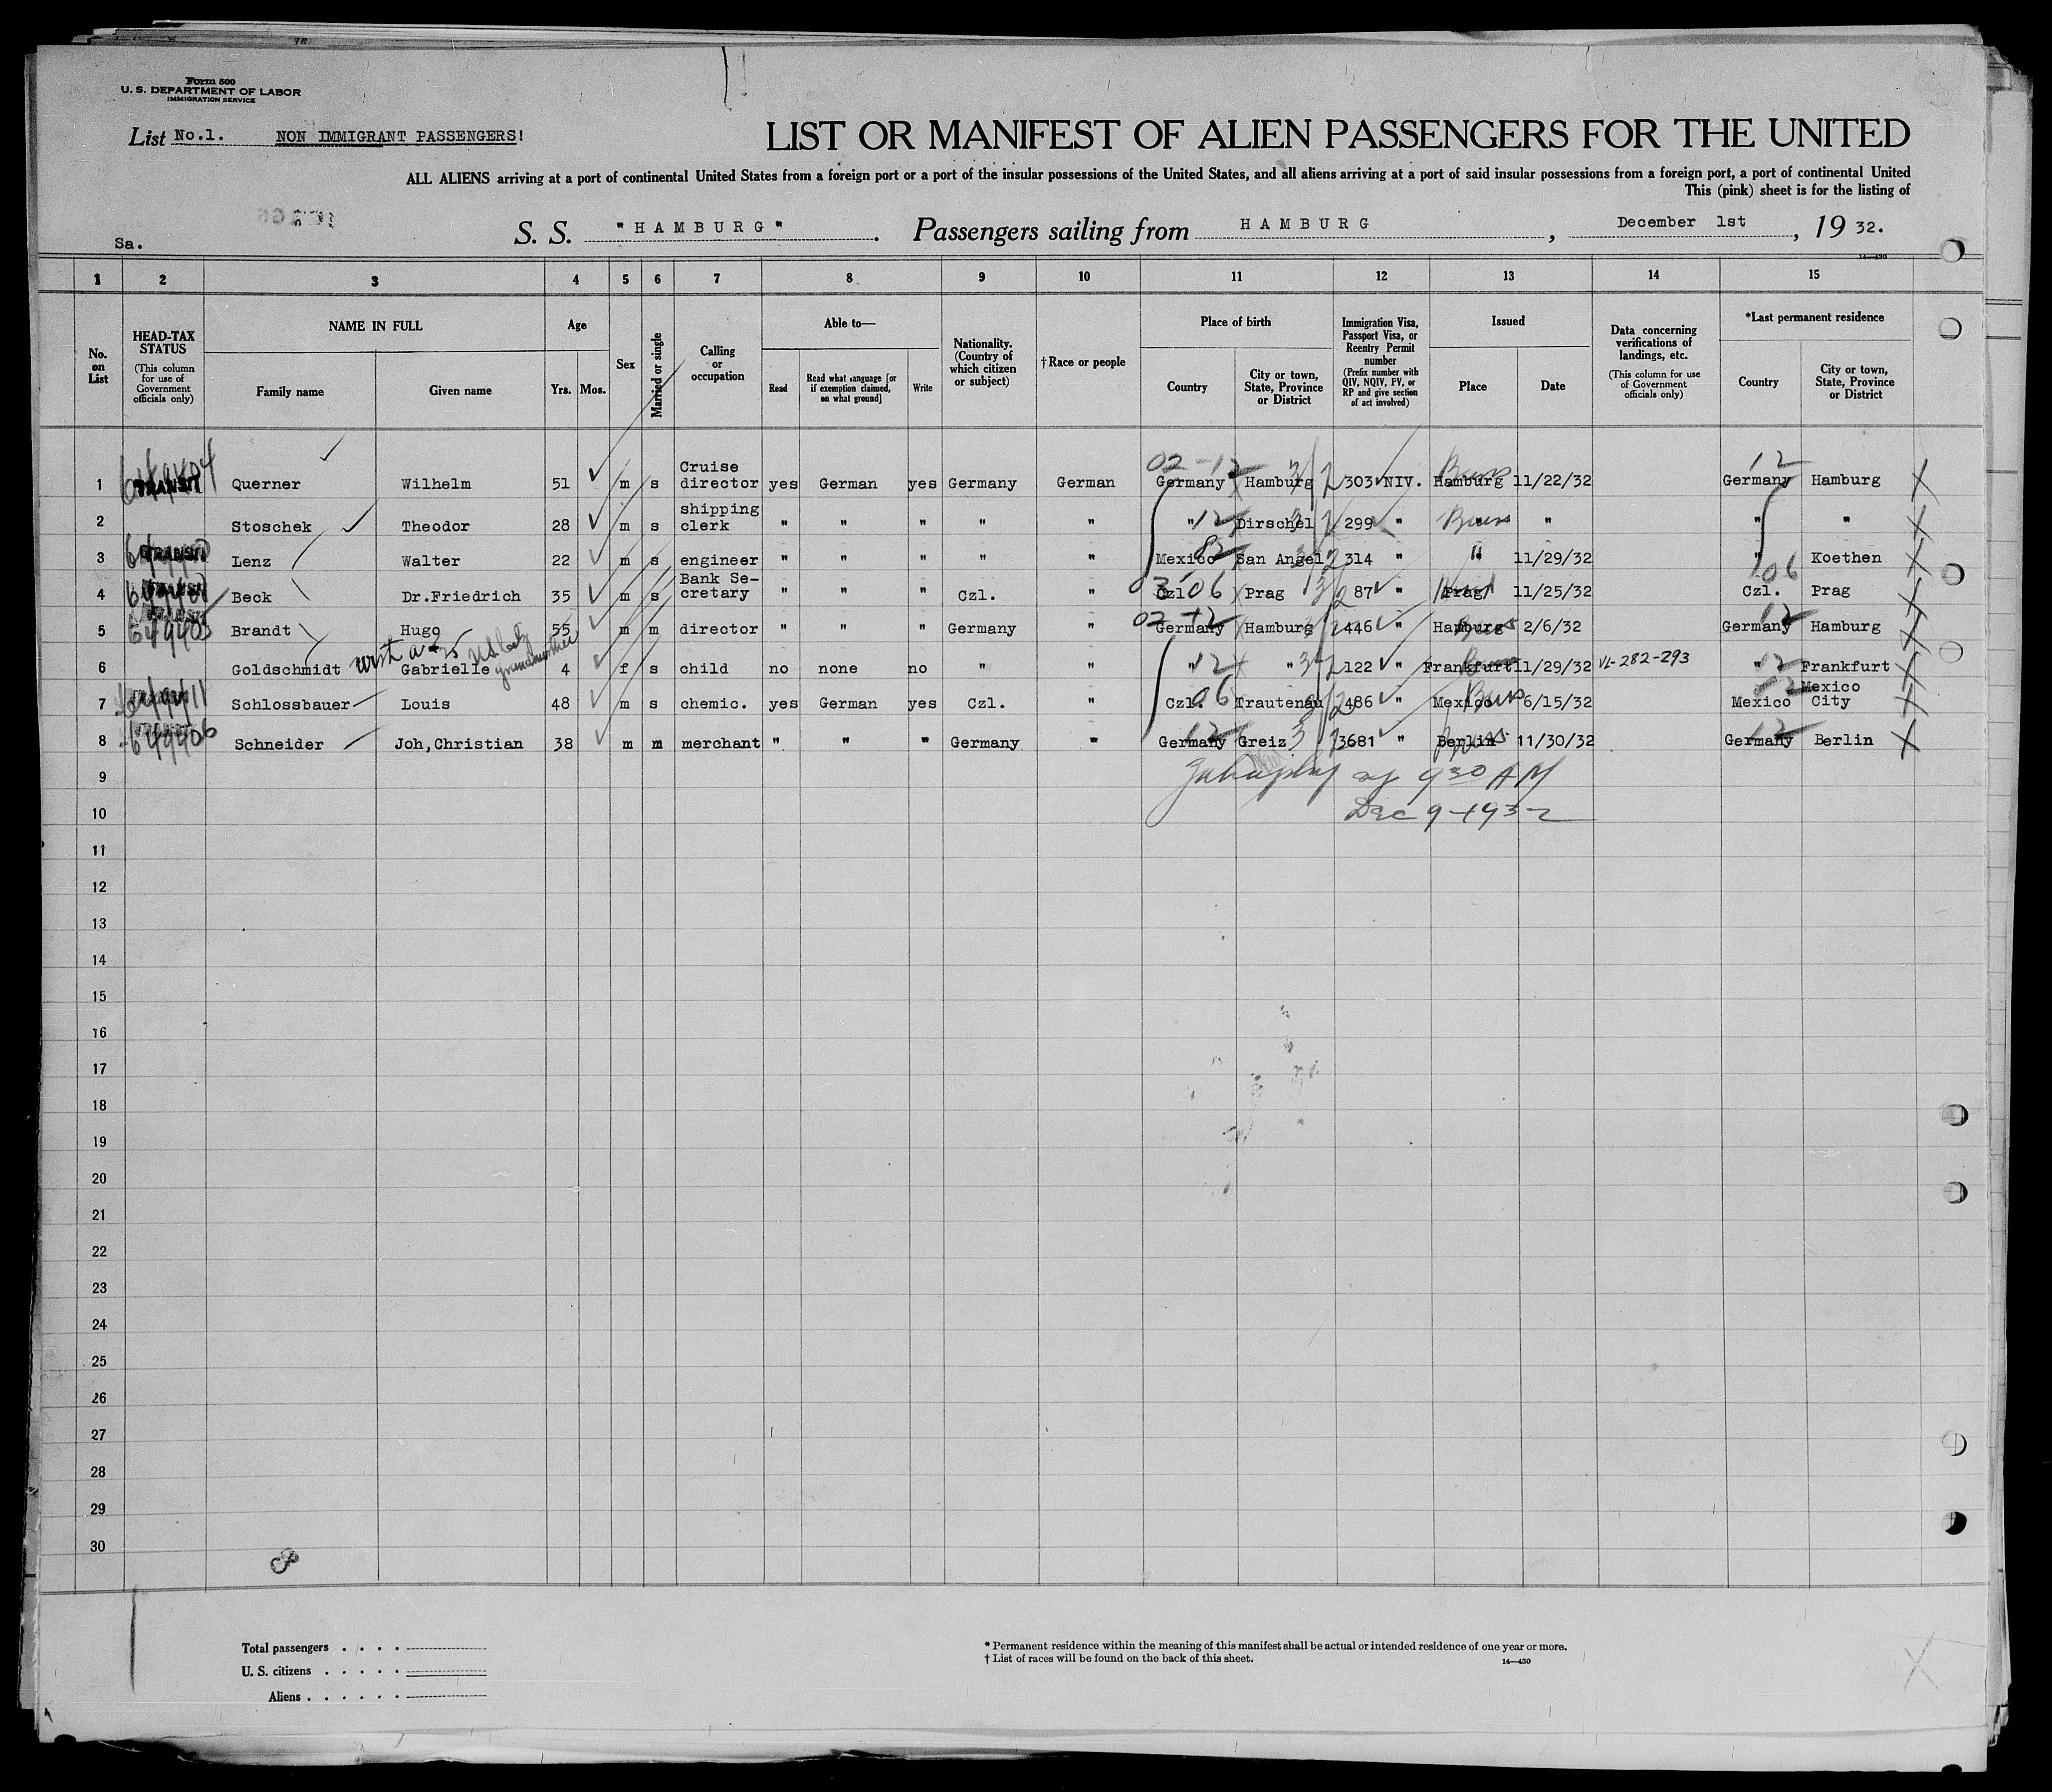 Form 500
U. S. DEPARTMENT OF LABOR
IMMIGRATION SERVICE
List No.1. NON IMMIGRANT PASSENGERS!
LIST OR MANIFEST OF ALIEN PASSENGERS FOR THE UNITED
ALL ALIENS arriving at a port of continental United States from a foreign port or a port of the insular possessions of the United States, and all aliens arriving at a port of said insular possessions from a foreign port, a port of continental United
This (pink) sheet is for the listing of
Sa.
S. S. "HAMBURG". Passengers sailing from HAMBURG, December 1st, 19 32.
14—430
1 2 3 4 5 6 7 8 9 10 11 12 13 14 15
No. on List
HEAD-TAX STATUS (This column for use of Government officials only)
NAME IN FULL
Family name Given name
Age
Yrs. Mos.
Sex
Married or single
Calling or occupation
Able to—
Read Read what language [or if exemption claimed, on what ground] Write
Nationality. (Country of which citizen or subject)
†Race or people
Place of birth
Country City or town, State, Province or District
Immigration Visa, Passport Visa, or Reentry Permit number (Prefix number with QIV, NQIV, PV, or RP and give section of act involved)
Issued
Place Date
Data concerning verifications of landings, etc. (This column for use of Government officials only)
*Last permanent residence
Country City or town, State, Province or District
1 TRANSIT Querner Wilhelm 51 m s Cruise director yes German yes Germany German Germany Hamburg 303 NIV. Hamburg 11/22/32 Germany Hamburg
2 Stoschek Theodor 28 m s shipping clerk " " " " " " Dirschel 299 " " " " "
3 TRANSIT Lenz Walter 22 m s engineer " " " " " Mexico San Angel 314 " " 11/29/32 " Koethen
4 Beck Dr.Friedrich 35 m s Bank Secretary " " " Czl. " Czl. Prag 87 " Prag 11/25/32 Czl. Prag
5 649405 Brandt Hugo 55 m m director " " " Germany " Germany Hamburg 446 " Hamburg 2/6/32 Germany Hamburg
6 Goldschmidt Gabrielle grandmother 4 f s child no none no " " " " 122 " Frankfurt 11/29/32 VL-282-293 " Frankfurt
7 Schlossbauer Louis 48 m s chemic. yes German yes Czl. " Czl. Trautenau 486 " Mexico 6/15/32 Mexico Mexico City
8 649406 Schneider Joh,Christian 38 m m merchant " " " Germany " Germany Greiz 3681 " Berlin 11/30/32 Germany Berlin
9 9 30 AM
10 Dec 9-1932
11
12
13
14
15
16
17
18
19
20
21
22
23
24
25
26
27
28
29
30
Total passengers . . . .
U. S. citizens . . . . .
Aliens . . . . . .
* Permanent residence within the meaning of this manifest shall be actual or intended residence of one year or more.
† List of races will be found on the back of this sheet.
14—430